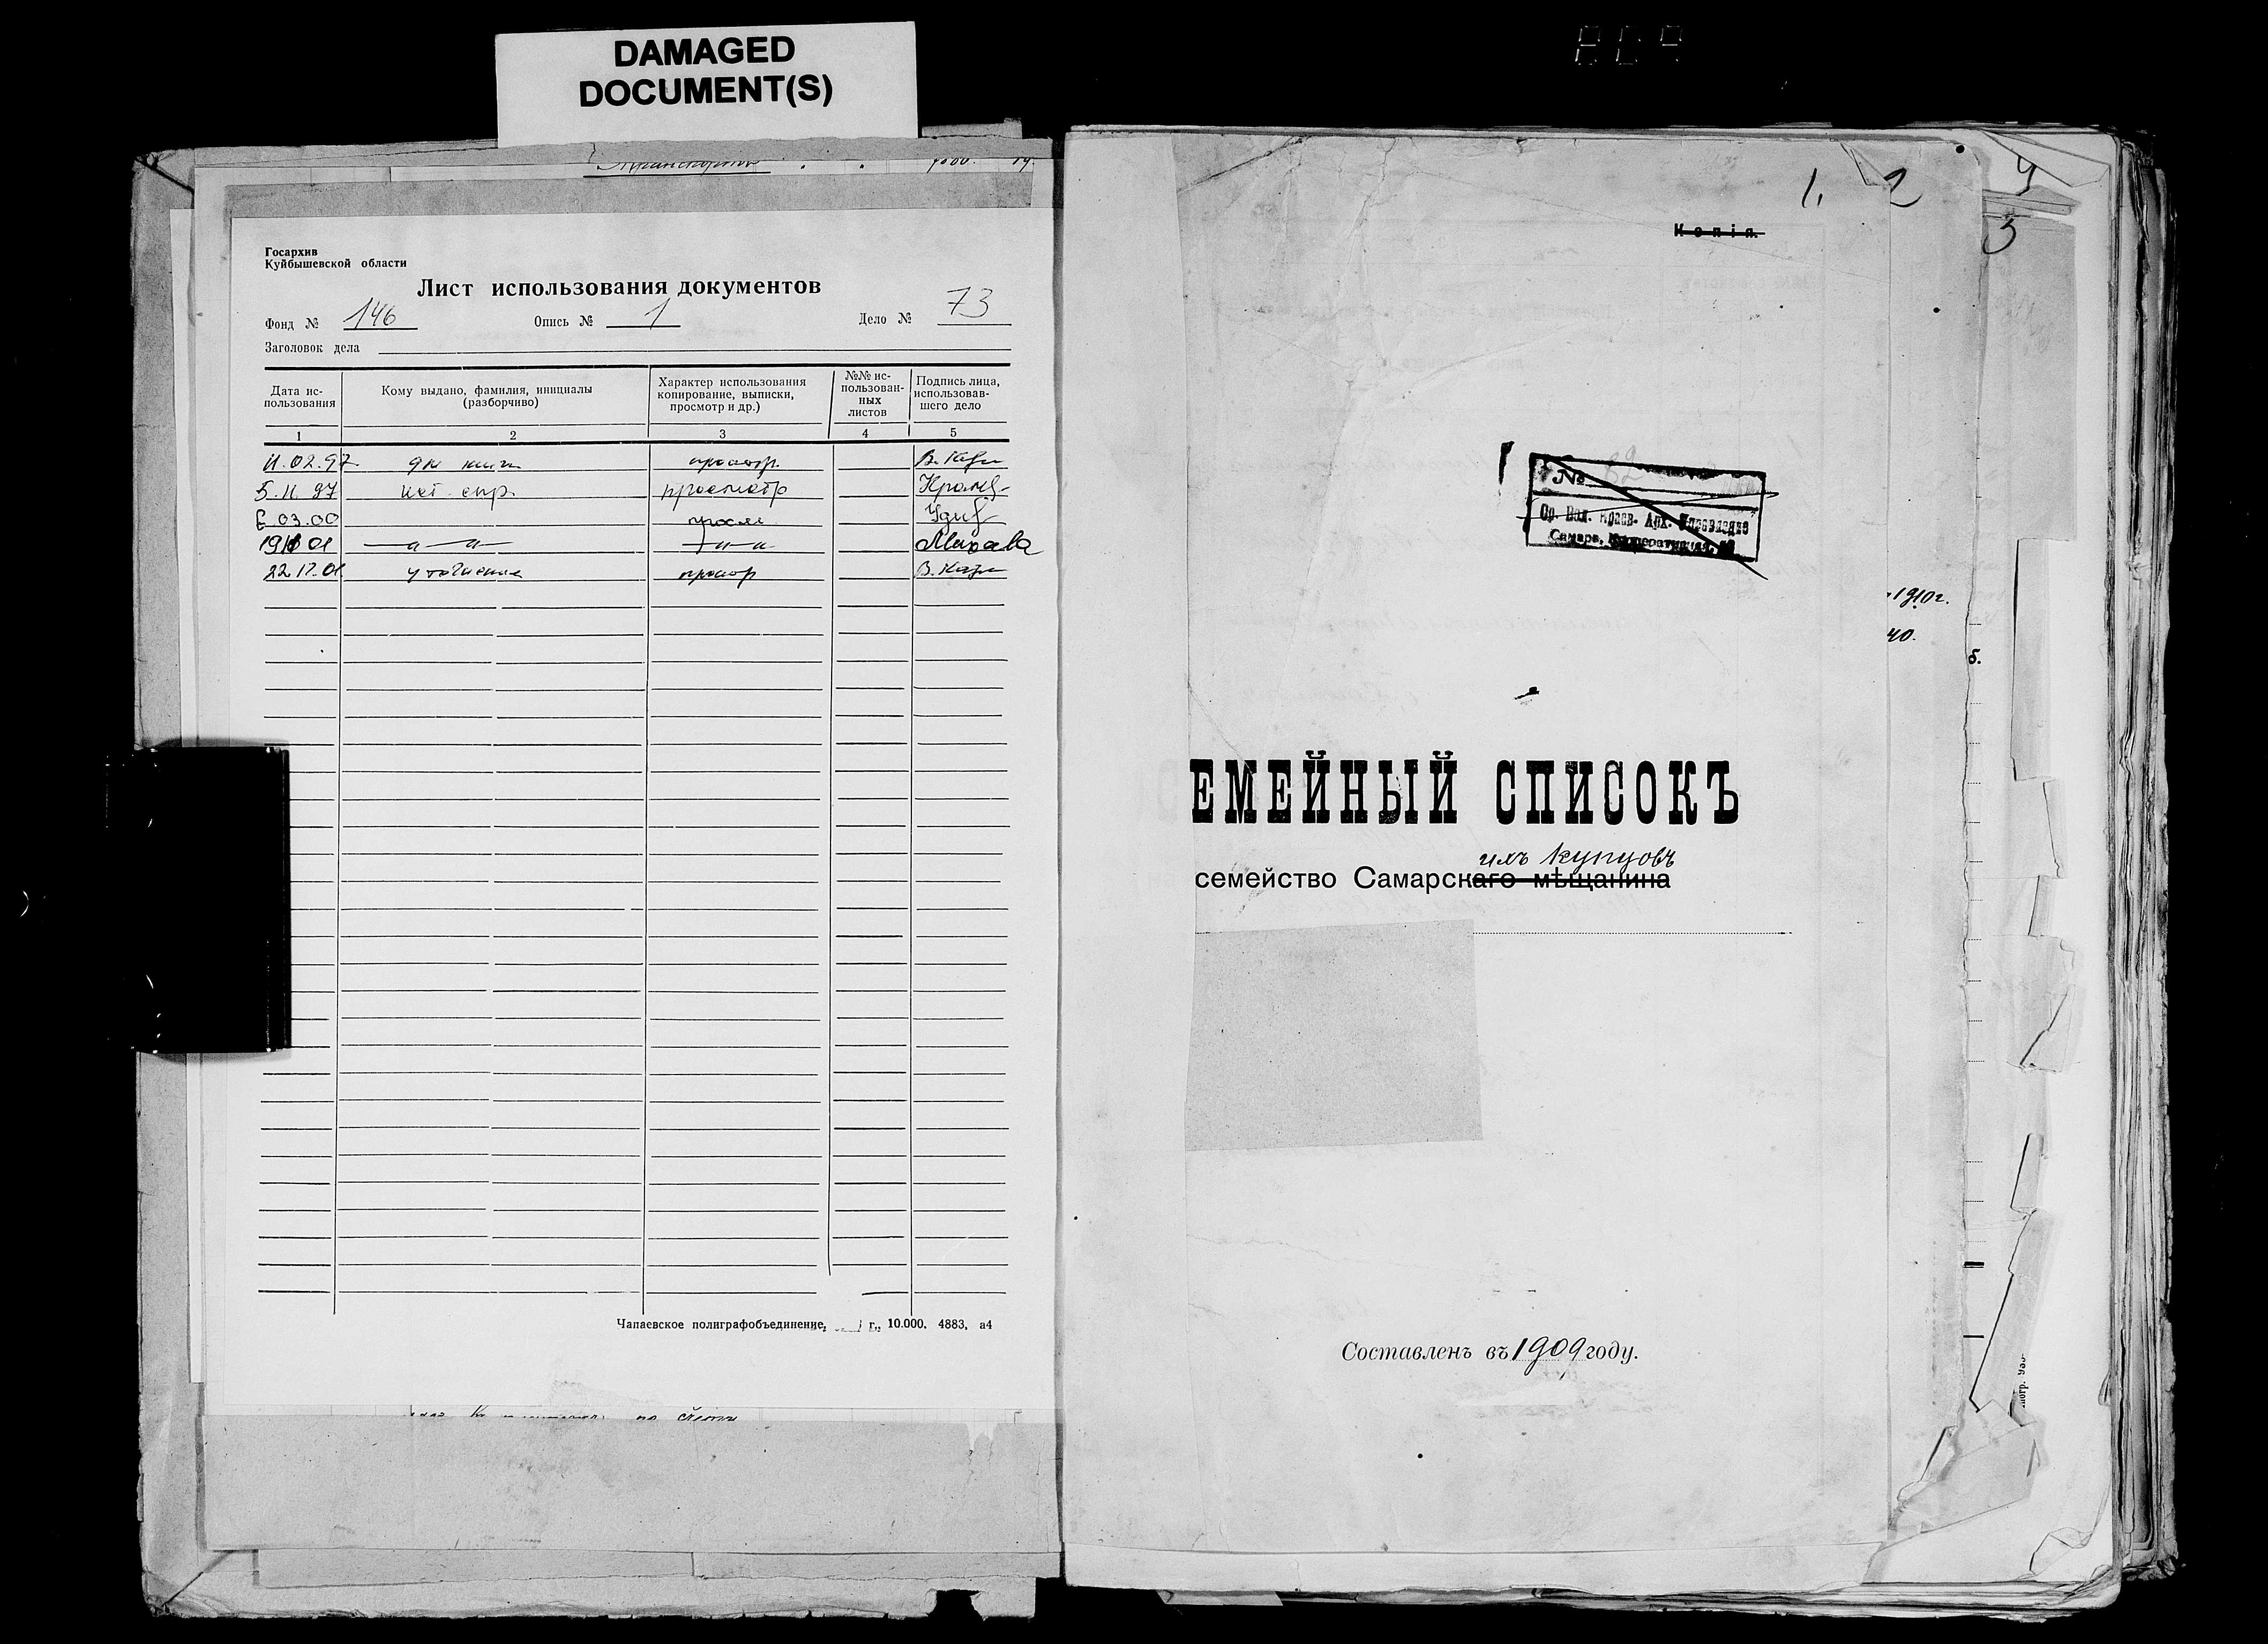 DAMAGED
DOCUMENT(S)
Госархив
Куйбышевской области
Лист использования документов
Фонд № 146 Опись № 1 Дело № 73
Заголовок дела
Дата ис-
пользования
Кому выдано, фамилия, инициалы
(разборчиво)
Характер использования
копирование, выписки,
просмотр и др.)
№№ ис-
пользован-
ных
листов
Подпись лица,
использовав-
шего дело
1 2 3 4 5
11.02.97
5.11.97 просмотр
03.00
Чапаевское полиграфобъединение, г., 10.000. 4883, а4
1. 2
4
3
Копія.
№
Ср. Вол. Краев. Арх.
Самара,
1910г.
40.
б.
ЕМЕЙНЫЙ СПИСОКЪ
ихъ купцовъ
семейство Самарскаго мѣщанина
Составленъ въ 1909 году.